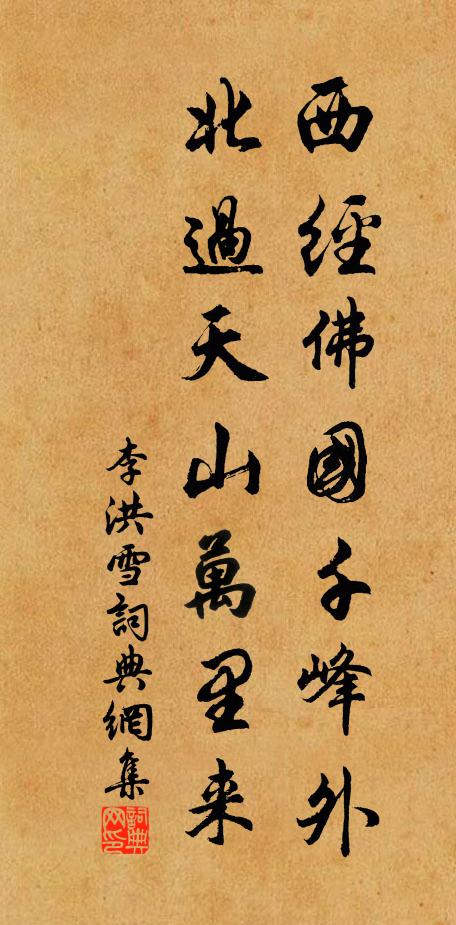 西經佛國千峰外
北過天山萬里来
李洪雪詞典網集
詞典
网印